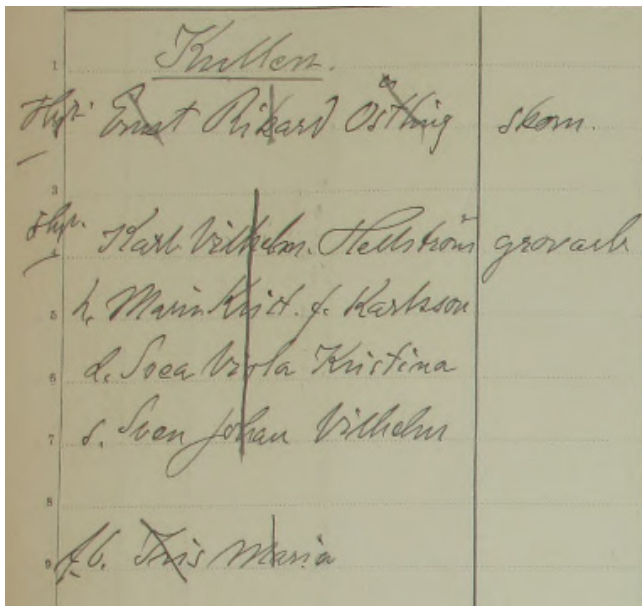 1 Kullen.
Hyr. Ernst Rikard Östling skom.
3
Hyr. Karl Vilhelm. Hellström grovarb
5 h. Maria Krist. f. Karlsson
6 d. Svea Viola Kristina
7 s. Sven Johan Vilhelm
8
9 Iris Maria